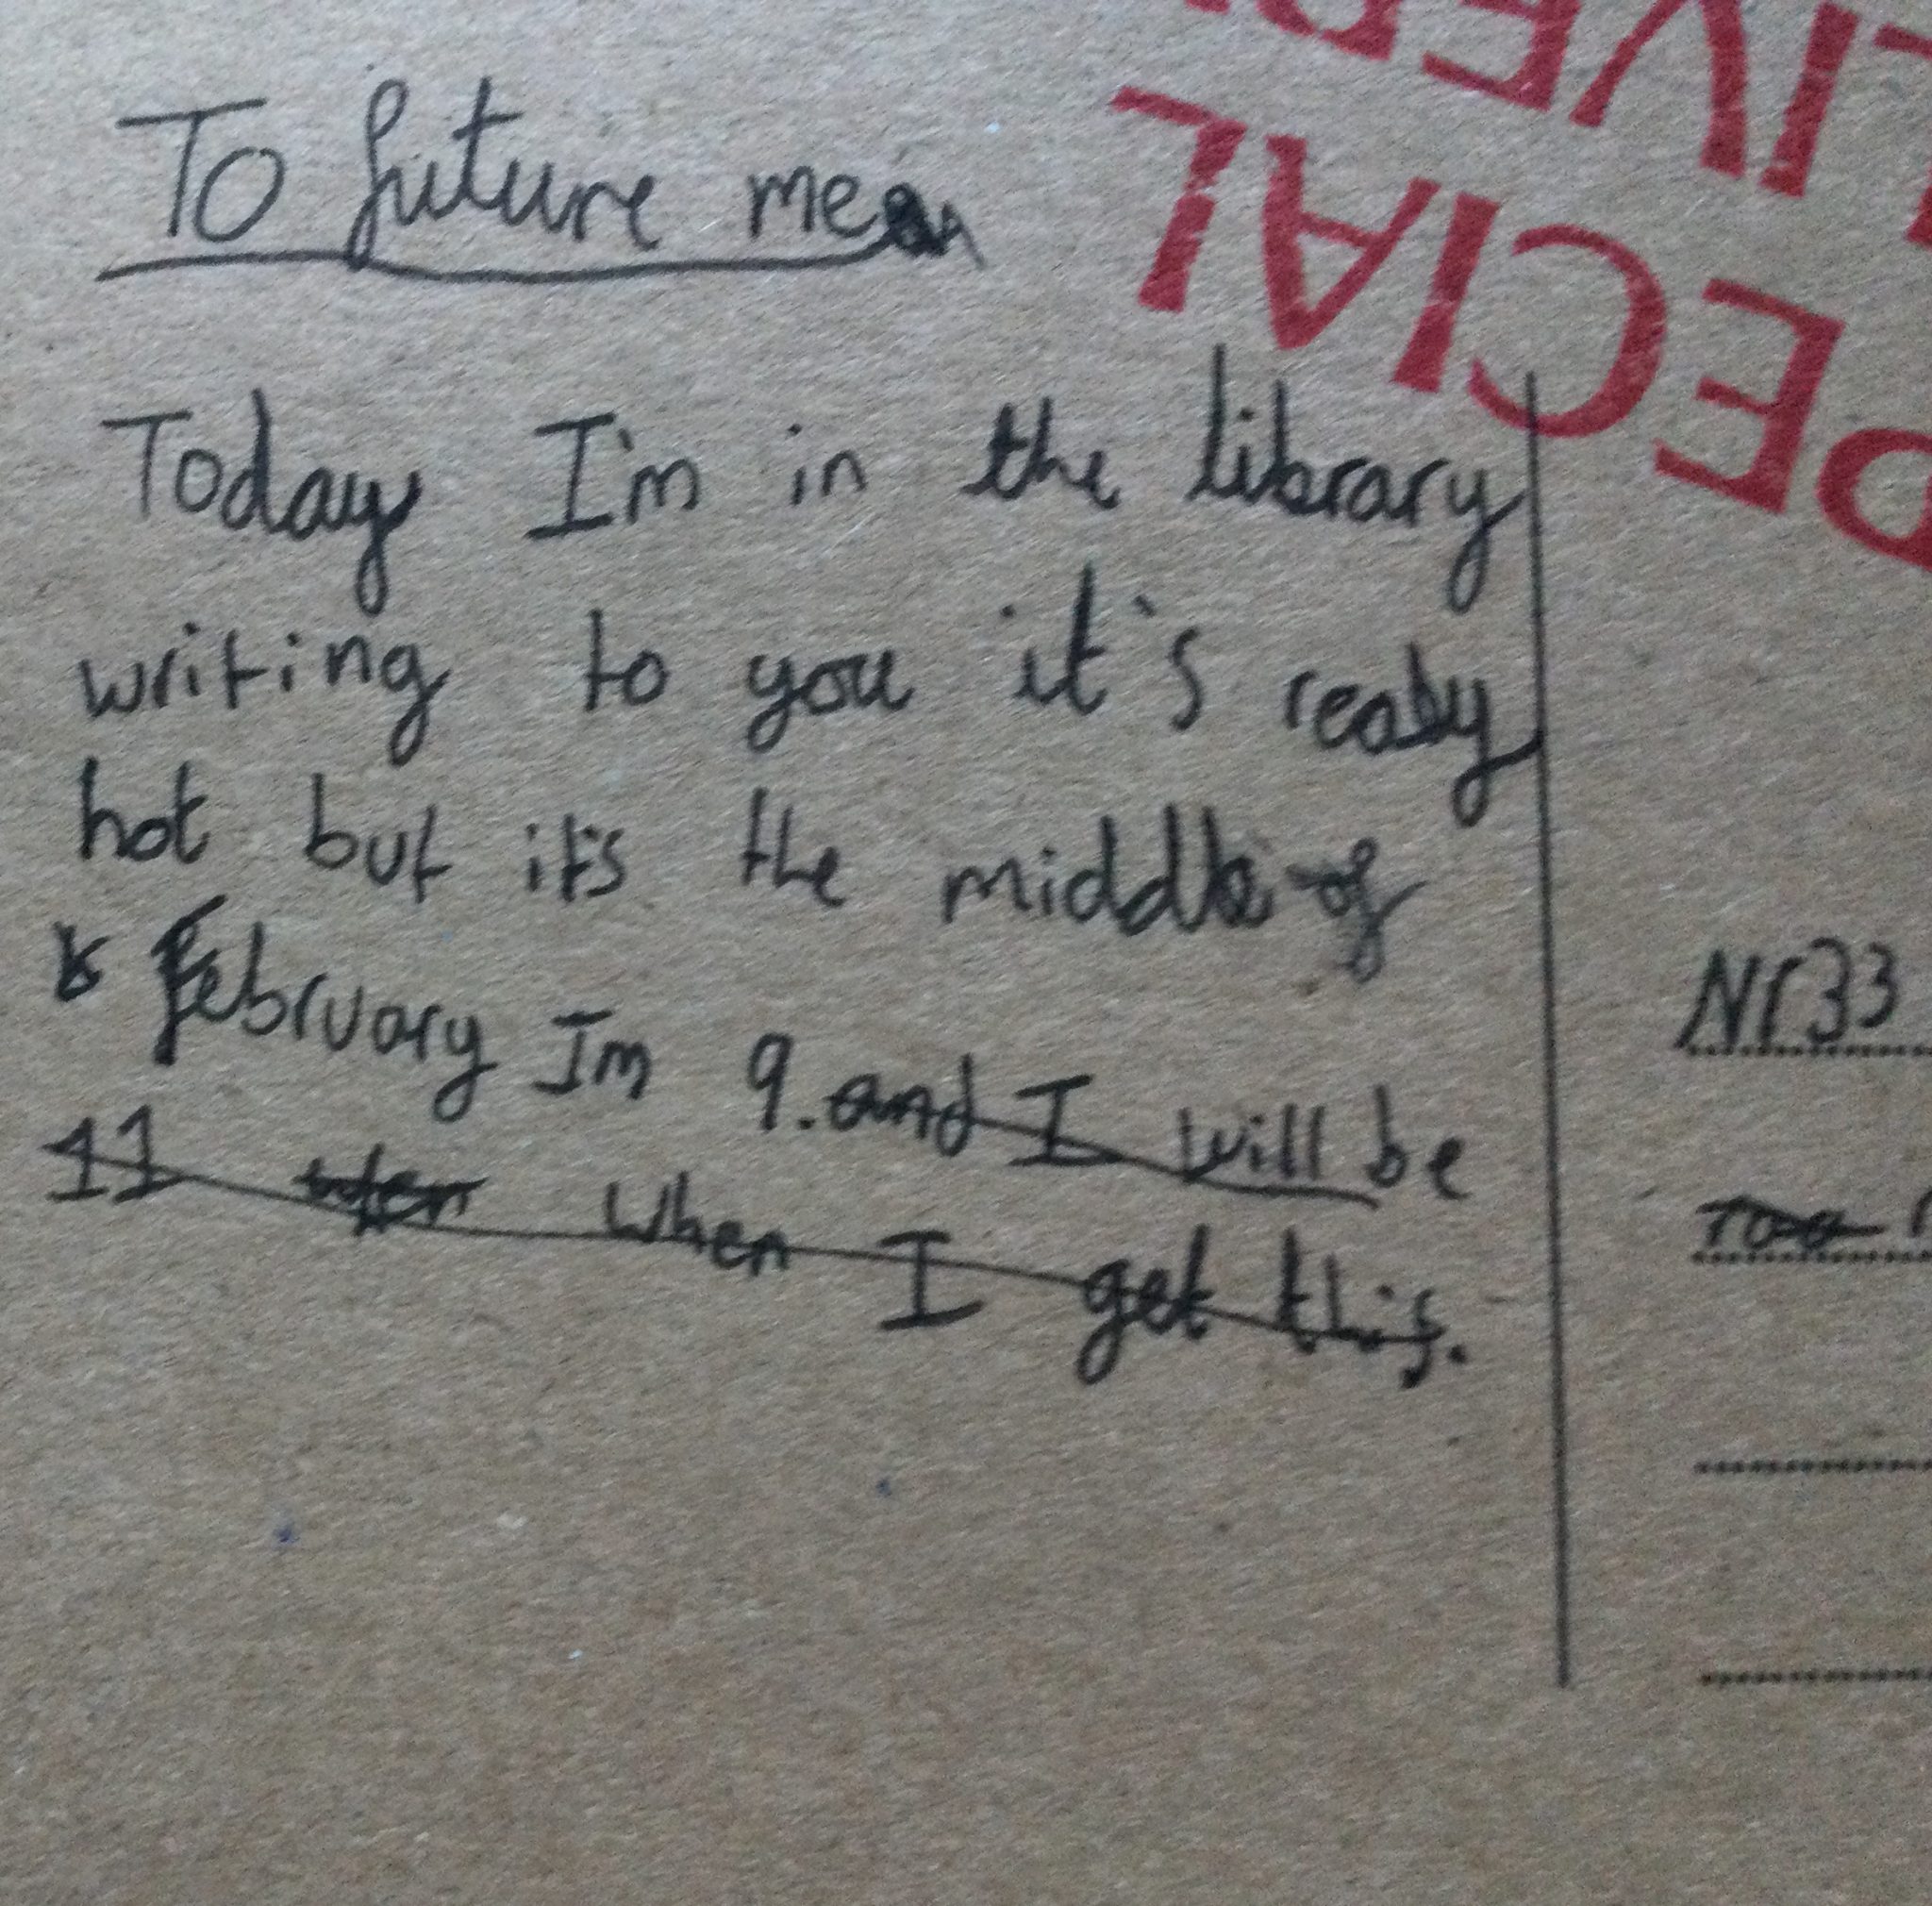 To future me
Today I'm in the library
writing to you it's really
hot but it's the middle of
February Im 9. and I will be
11 when I get this.
SPECIAL
Nr33